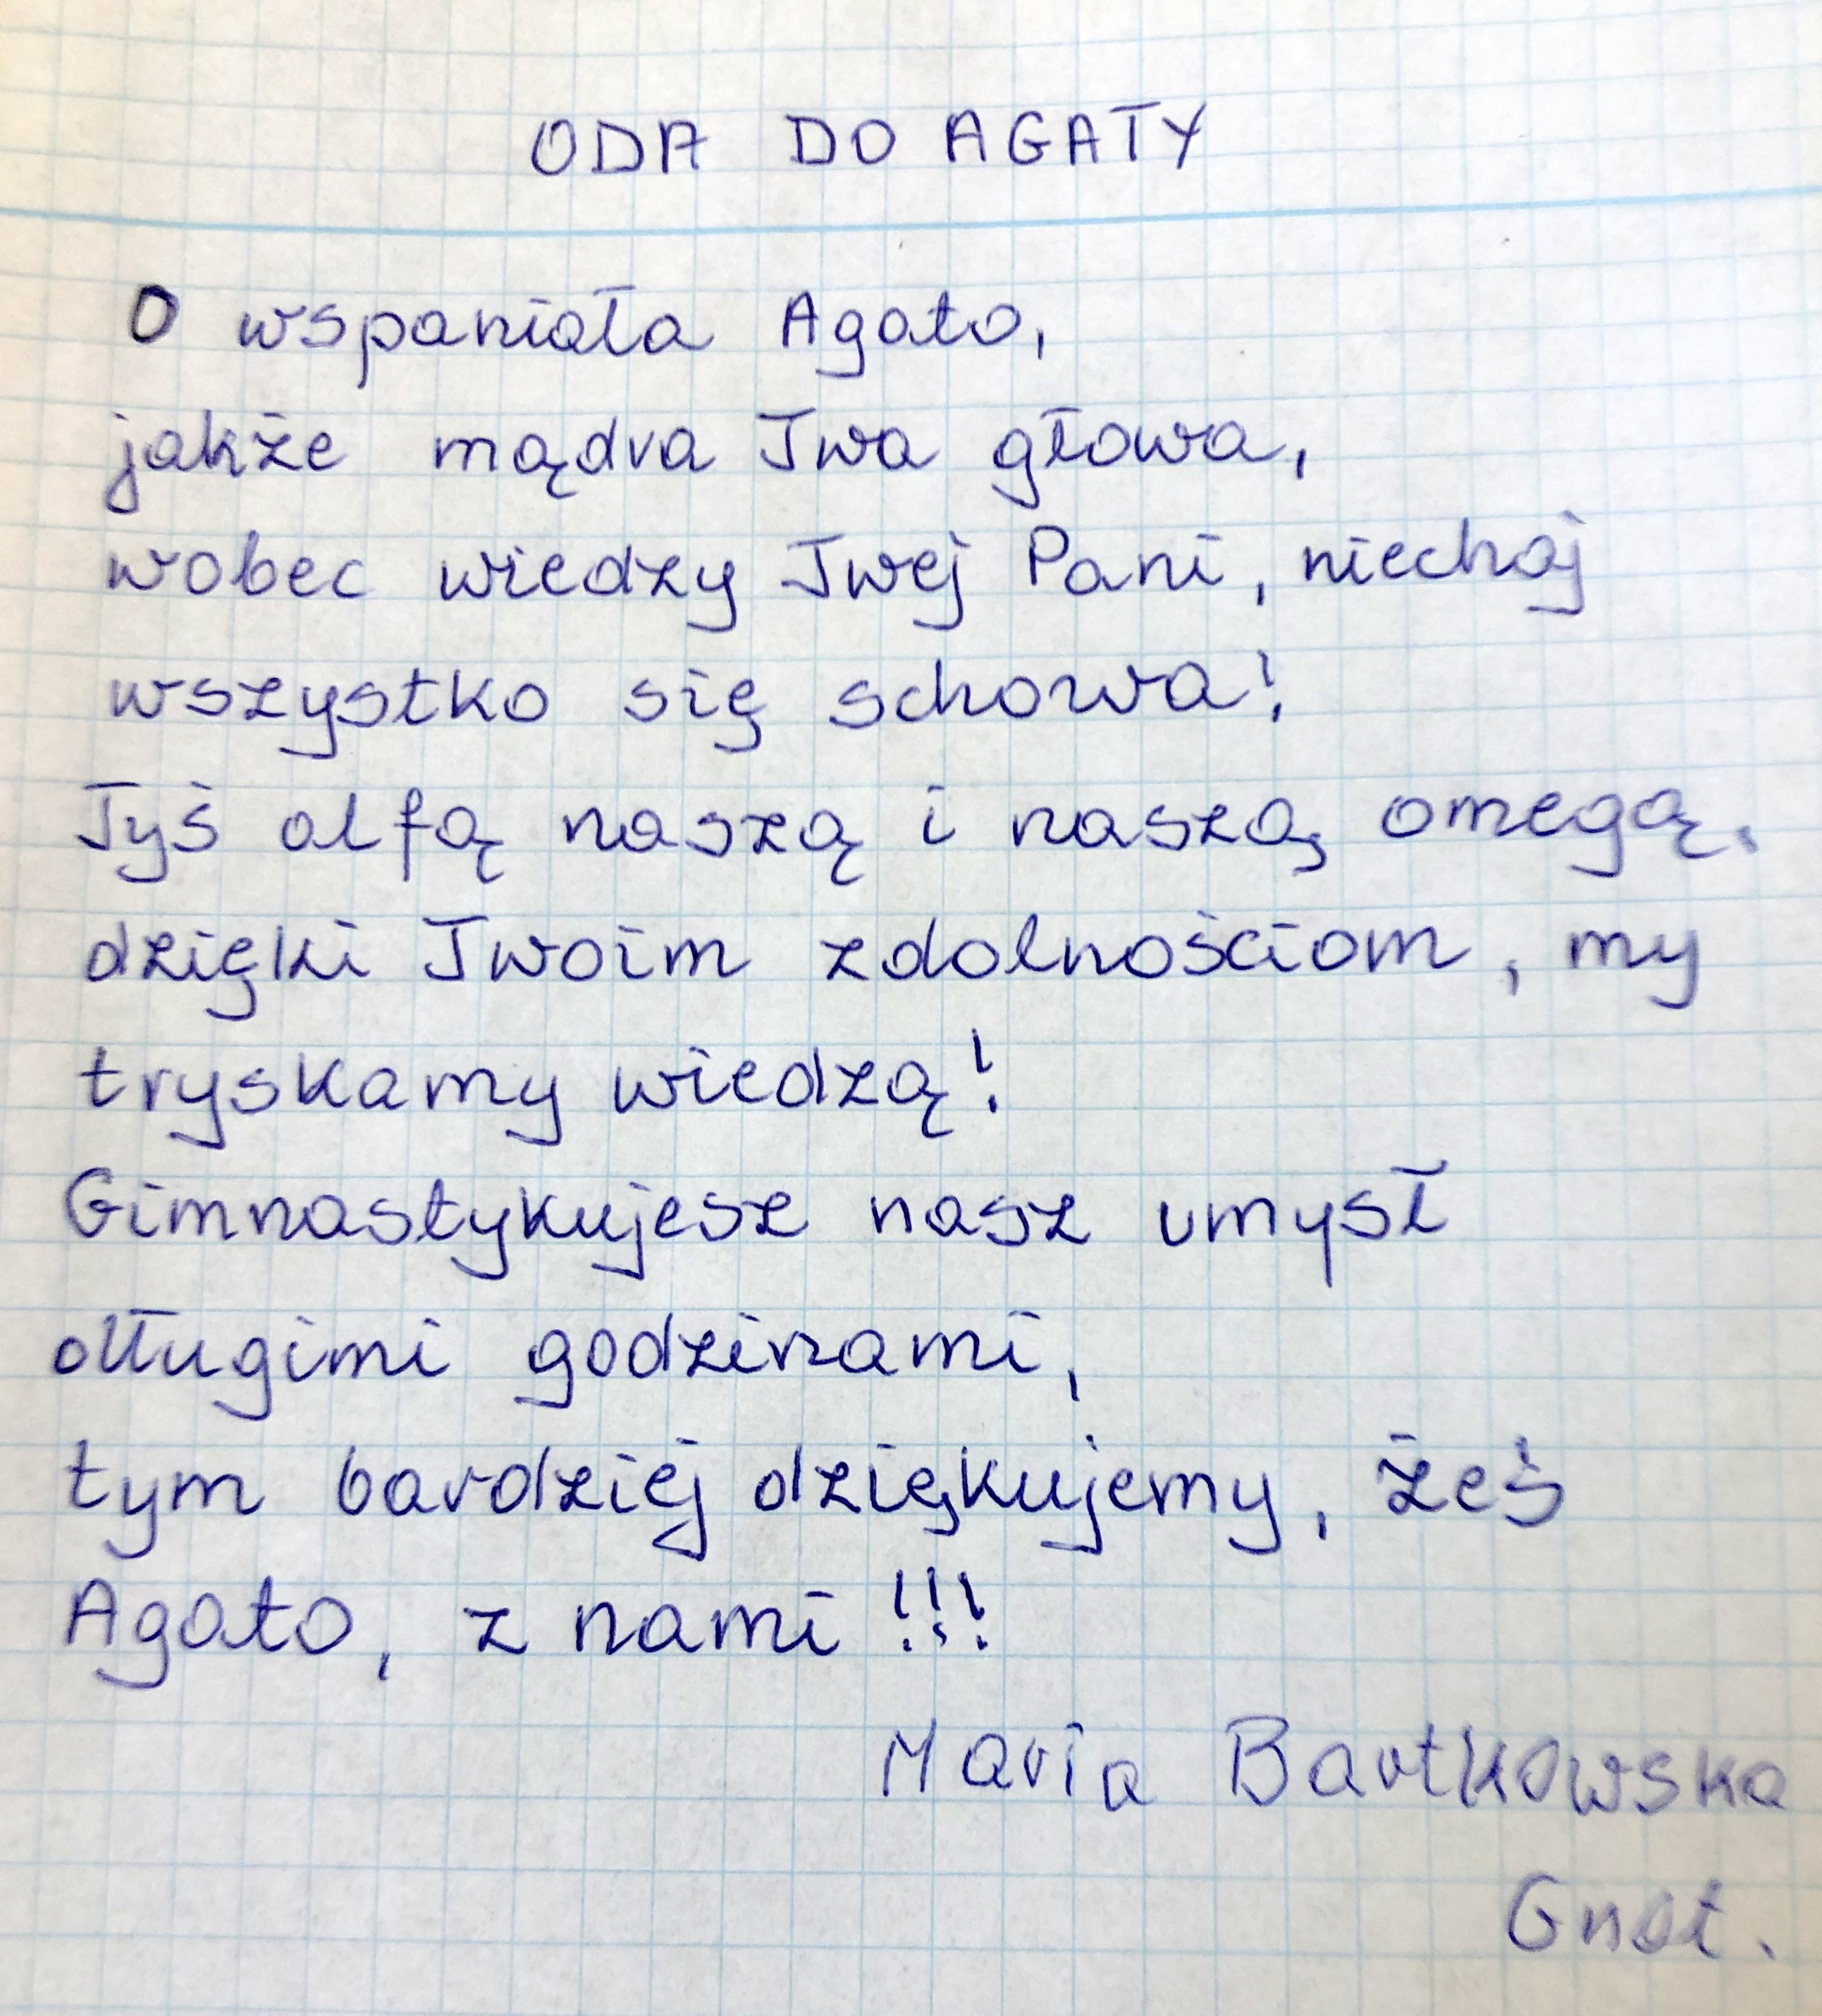 ODA DO AGATY
O wspaniała Agato,
jakże mądra Twa głowa,
wobec wiedzy Twej Pani, niechaj
wszystko się schowa!
Tyś alfą naszą i naszą omegą,
dzięki Twoim zdolnościom, my
tryskamy wiedzą!
Gimnastykujesz nasz umysł
długimi godzinami,
tym bardziej dziękujemy, żeś
Agato, z nami !!!
Maria Bartkowska